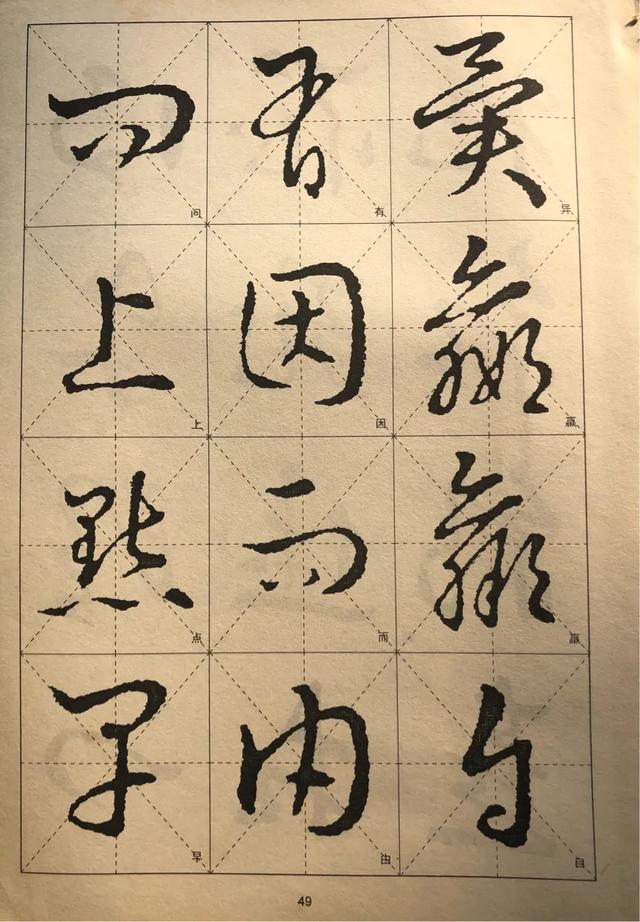 异嬴羸自
有因而由
问上点早
49